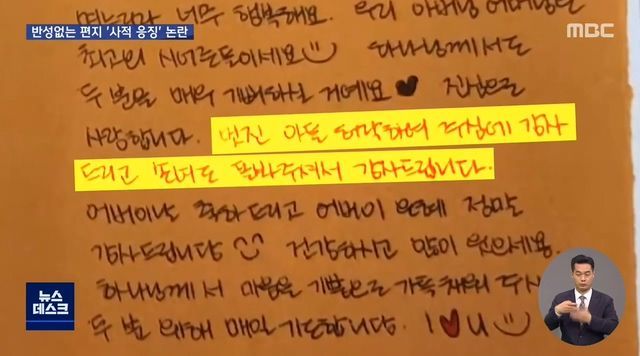 반성없는 편지 '사적 응징' 논란
MBC
며느리라 너무 행복해요. 우리 아버님 어머님은
최고의 시어른들이세요
하나님께서도
두 분을 매우 기뻐하실 거예요 ♥ 진심으로
사랑합니다. 멋진 아들 허락하여 주심에 감사
드리고 손녀도 돌봐주셔서 감사드립니다.
어버이날 축하드리고 어버이 은혜 정말
감사드립니당 건강하시고 많이 웃으세용
하나님께서 마음을 기쁨으로 가득 채워 주시
두 분 위해 매일 기도합니다. I ♥ U
뉴스
데스크